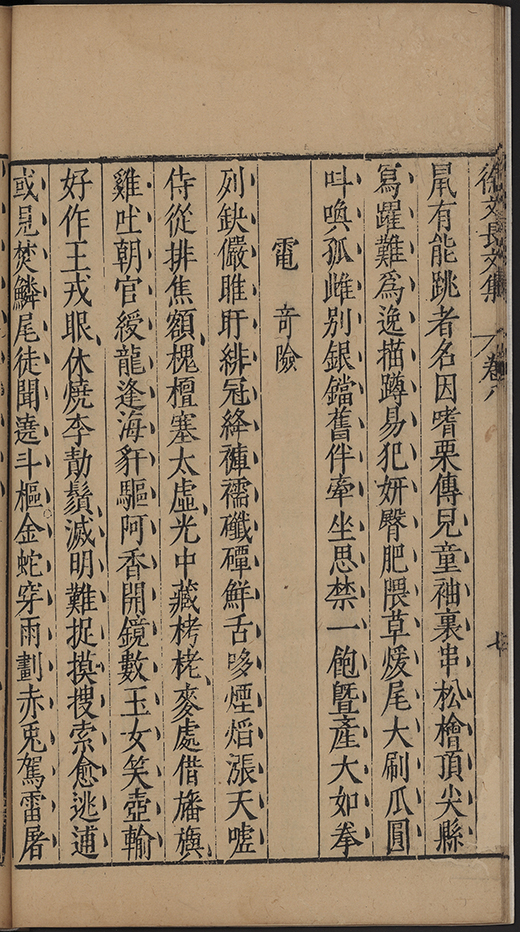 徐文長文集 卷八 七
鼠有能跳者名因嗜栗傳兒童袖裏串松檜頂尖縣
寫躍難為逸描蹲易犯妍臀肥隈草煖尾大刷瓜圓
呌喚孤雌别銀鐺舊件牽坐思禁一飽暨產大如拳
電 竒險
列缺儼睢盱緋冠絳褲襦殲磹鮮舌哆煙熖漲天嘘
侍從排焦額槐檀塞太虛光中藏栲栳麥處借旛旟
雞吐朝官綬龍逢海豻驅阿香開鏡數玉女笑壺輸
好作王戎眼休燒李勣鬚滅明難捉摸搜索愈逃逋
或㒵焚鱗尾徒聞遶斗樞金蛇穿雨劃赤兎駕雷屠